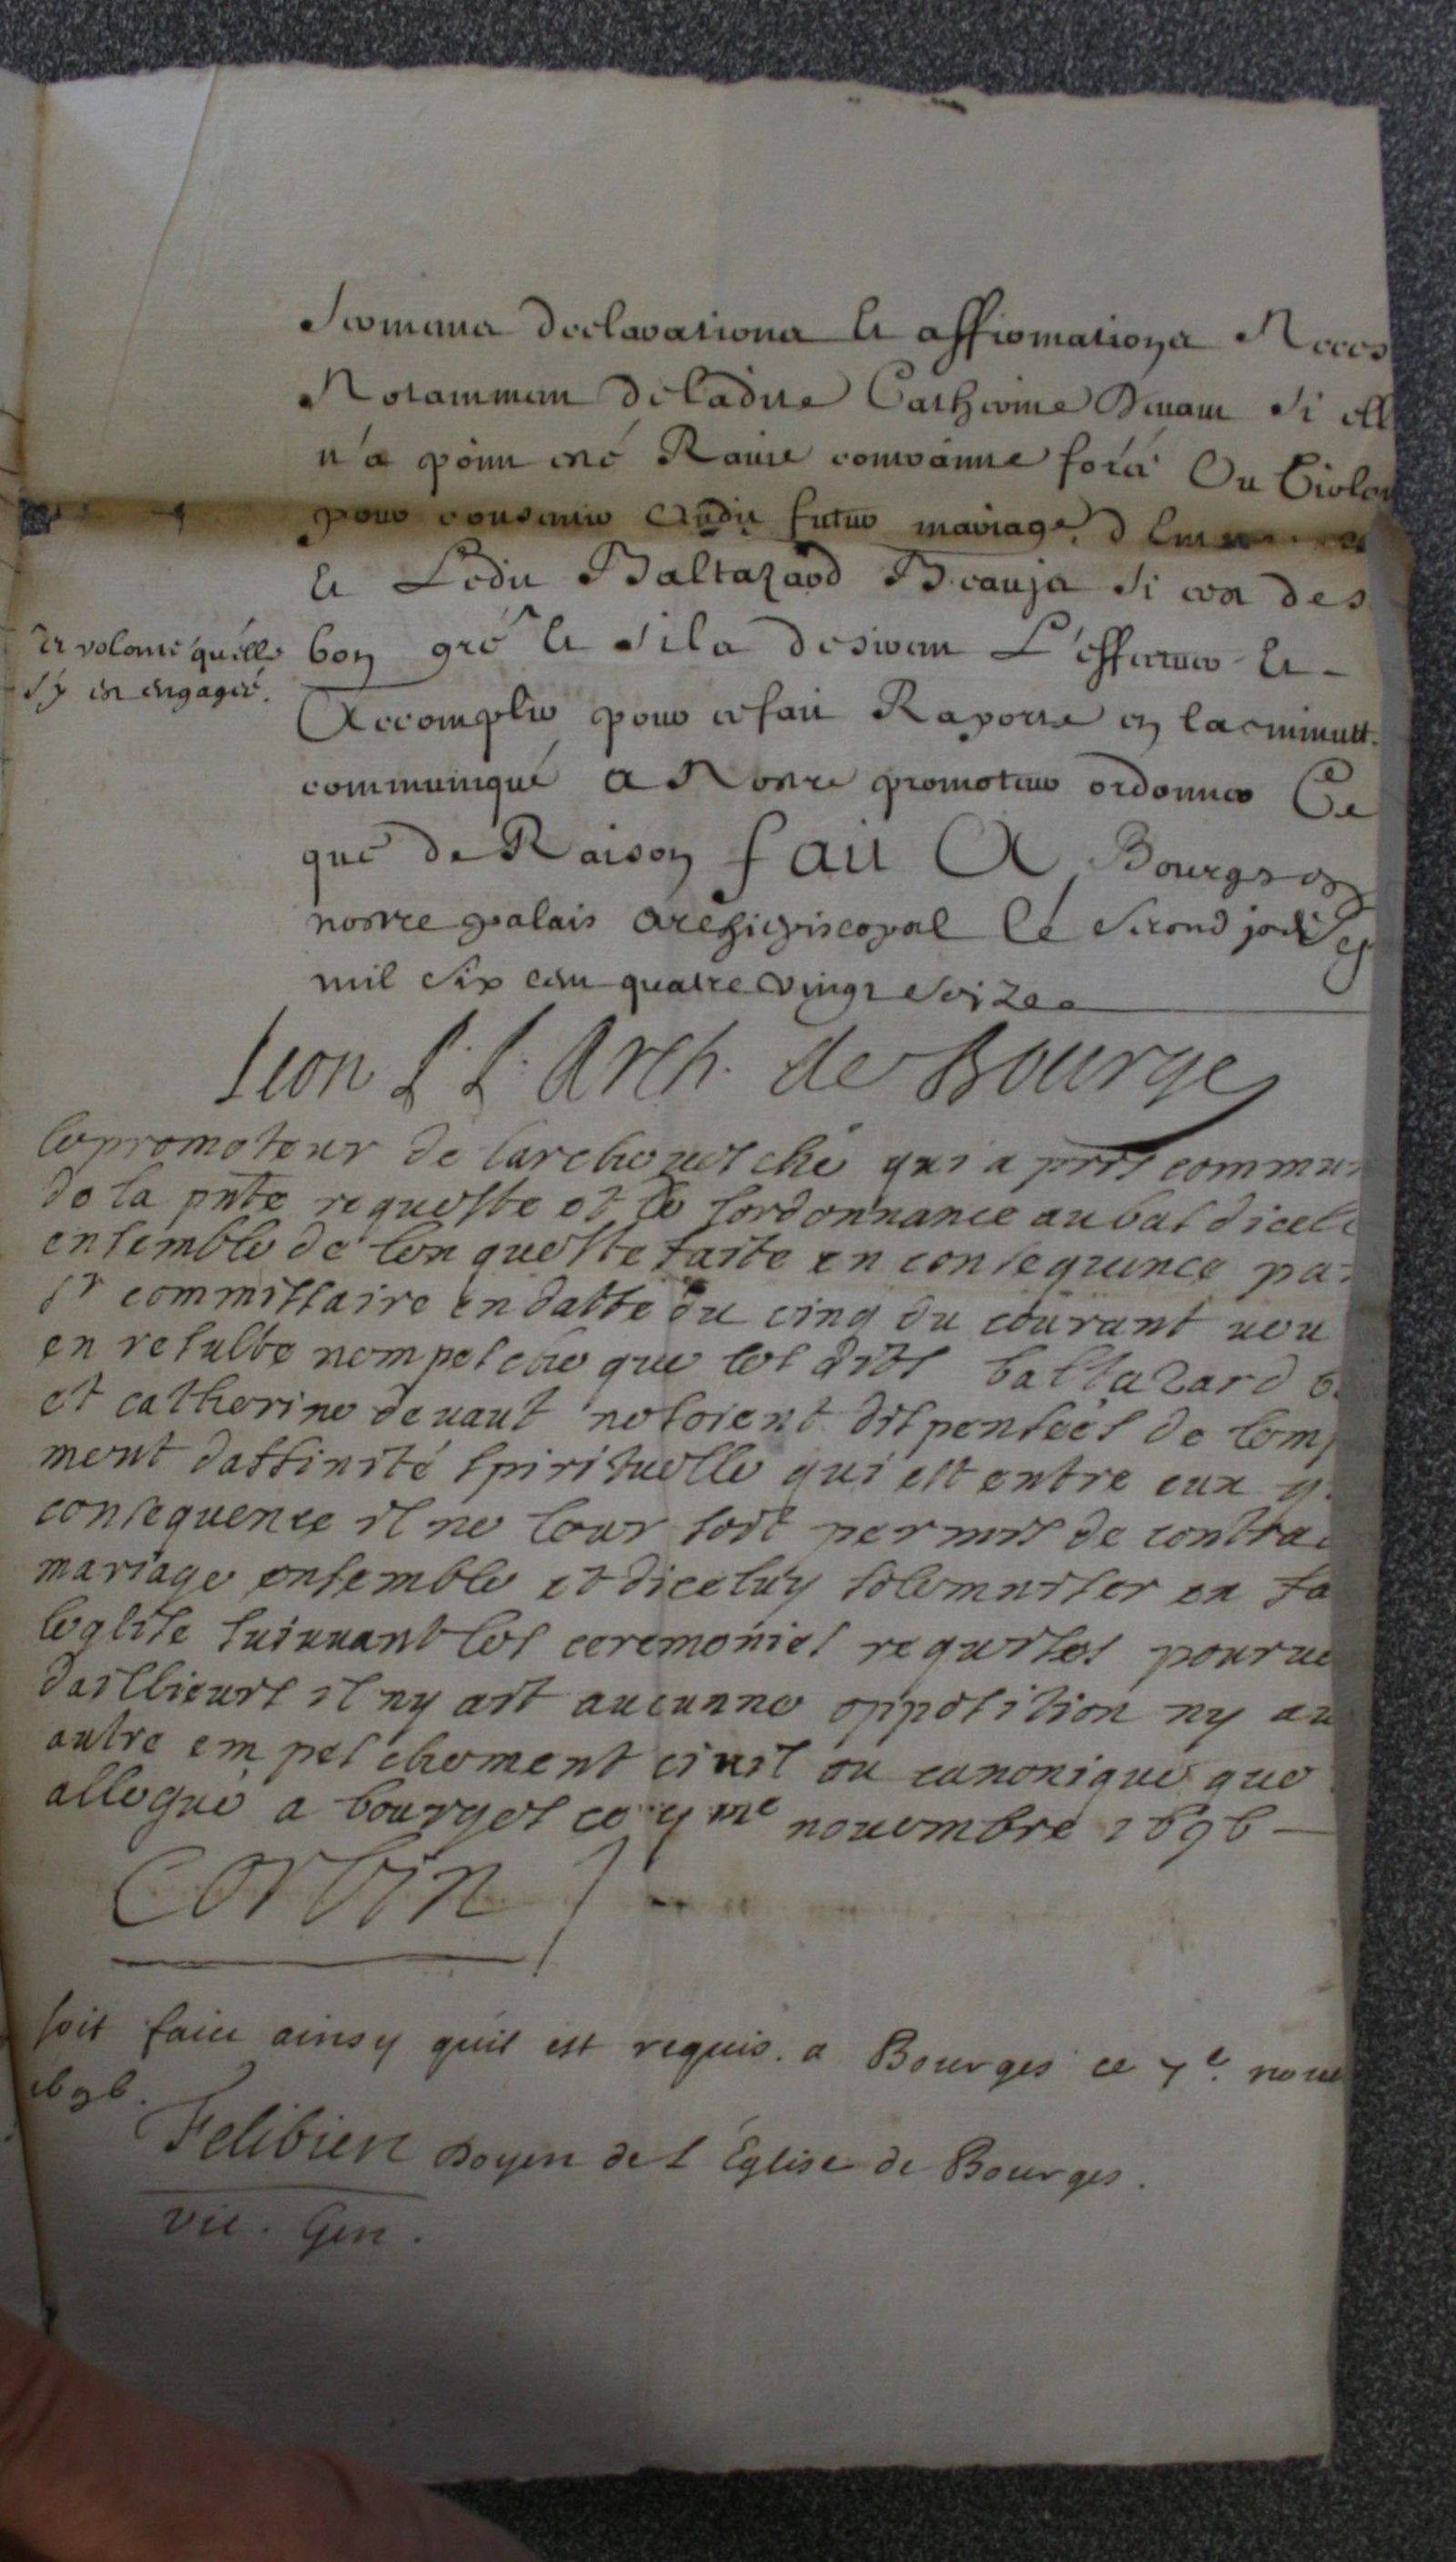 Sermens declarations et affirmations Neces
Notamment de ladite Catherine Devant si ell
n'a point esté Ravie contrainte forcé Ou Violen
pour consentir Audit futur mariage
et Ledit Baltazard Beauja si c'est des
et volonté qu'elle
s'y est engagée.
bon gré et s'ils desirent L'effectuer et
Accomplir pour ce fait Raporté en la minutte
communiqué a Nostre promoteur ordonner Ce
que de Raison fait A Bourges en
nostre palais archiepiscopal le second jour
mil six cent quatre vingt seize
Leon P. P. Arch. de Bourges
le promoteur de larchevesché qui a pris commu
de la pnte requeste et de lordonnance au bas dicell
ensemble de lenqueste faite en consequence pa
sr commissaire en datte du cinq du courant veu
en resulte nempesche que les dits baltazard b
et catherine devaut ne soient dispensées de lemp
ment daffinité spirituelle qui est entre eux q
consequence il ne leur soit permis de contrac
mariage ensemble et diceluy solemniser en fa
leglise suivvant les ceremonies requises pourve
daillieurs il ny ait aucunne opposition ny au
autre empeschement civil ou canonique que
allegué a bourges ce 7 me novembre 1696
Corbin
soit faict ainsy qu'il est requis. a Bourges ce 7e. nove
1696.
Felibien Doyen de l'Église de Bourges.
vic. Gen.